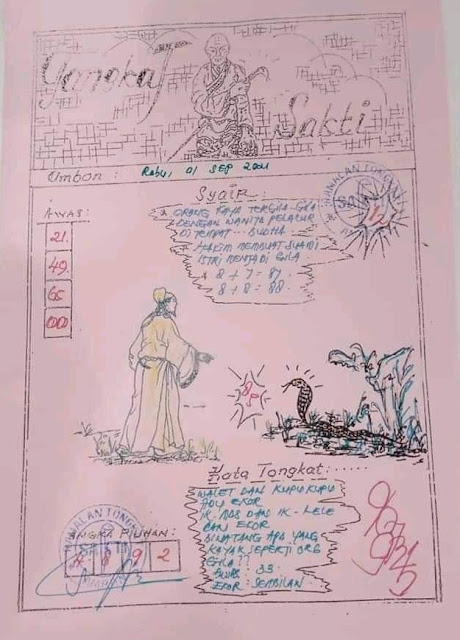 Yangka
Sakti
Umbon : Rabu, 01 SEP 2021
Syair
AWAS:
21.
49.
65
* ORANG KAYA TERGILA-GILA
DENGAN WANITA PELACUR
DI TEMPAT ... BUDHA
* HAKIM MEMBUAT SUAMI
ISTRI MENJADI GILA
8 + 7 = 87.
8 + 8 = 88.
RAMALAN TONGKAT
Kata Tongkat:......
WALET DAN KUPU KUPU
ADU EKOR
DAN IK - LELE
EKOR
BINATANG APA YANG
KAYAK SEPERTI ORG
GILA
33.
EKOR : SEMBILAN
RAMALAN TONGKAT
ANGKA PILIHAN:
4 8 9 2